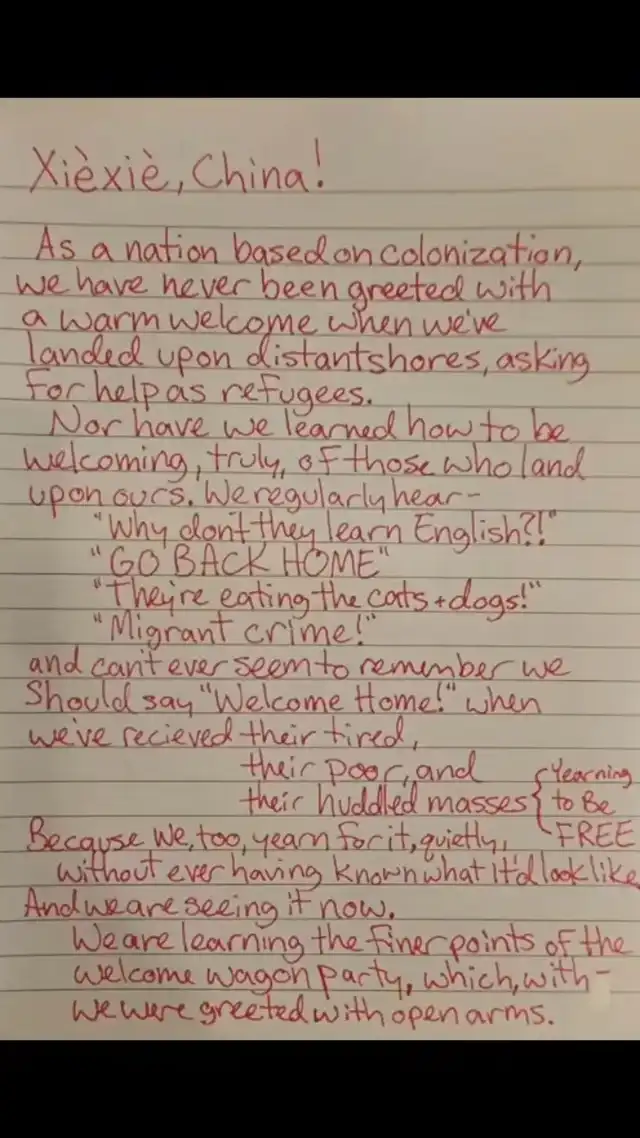 Xièxiè, China!
As a nation based on colonization,
we have never been greeted with
a warm welcome when we've
landed upon distant shores, asking
for help as refugees.
Nor have we learned how to be
welcoming, truly, of those who land
upon ours. We regularly hear-
"Why don't they learn English?!"
"GO BACK HOME"
"They're eating the cats + dogs!"
"Migrant crime!"
and can't ever seem to remember we
should say "Welcome Home!" when
we've recieved their tired,
their poor, and
their huddled masses { Yearning
to Be
FREE
Because we, too, yearn for it, quietly,
without ever having known what it'd look like
And we are seeing it now.
We are learning the finer points of the
welcome wagon party, which, with-
we were greeted with open arms.